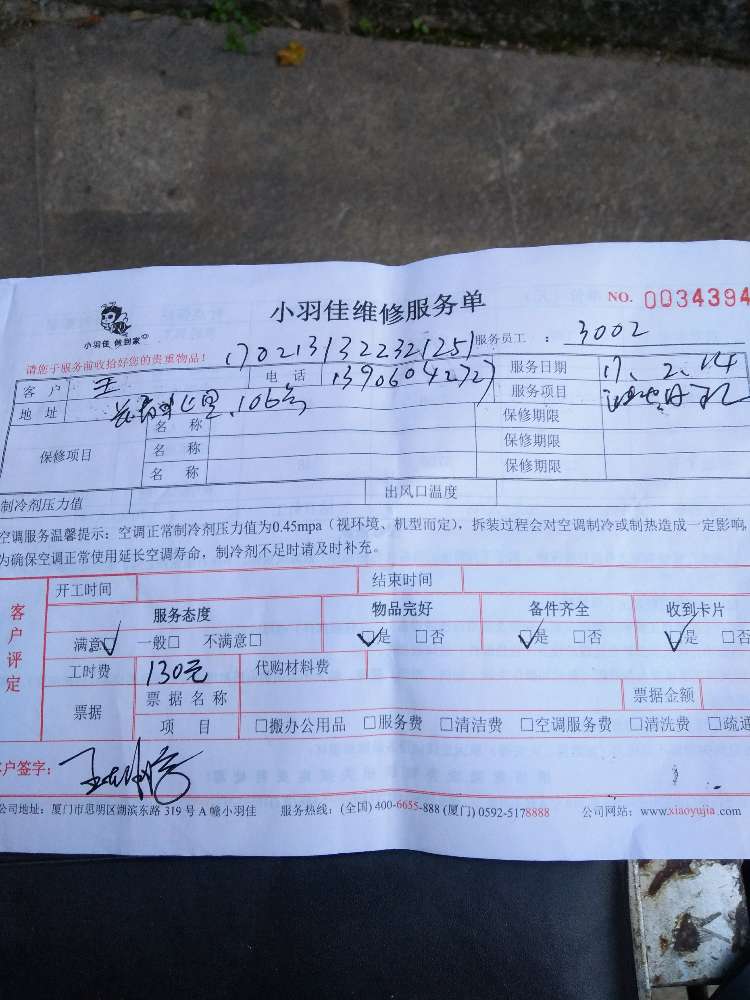 小羽佳维修服务单
NO. 0034394
小羽佳 做到家
请您于服务前收拾好您的贵重物品！ 1702131322321251 服务员工 ： 3002
客 户 王 电 话 13906042727 服务日期 17、2、14
地 址 106号 服务项目
保修项目 名 称 保修期限
名 称 保修期限
名 称 保修期限
制冷剂压力值 出风口温度
空调服务温馨提示：空调正常制冷剂压力值为0.45mpa（视环境、机型而定），拆装过程会对空调制冷或制热造成一定影响，
为确保空调正常使用延长空调寿命，制冷剂不足时请及时补充。
客户评定
开工时间 结束时间
服务态度 物品完好 备件齐全 收到卡片
满意☑ 一般□ 不满意□ ☑是 □否 ☑是 □否 ☑是 □否
工时费 130元 代购材料费
票据 票 据 名 称 票据金额
项 目 □搬办公用品 □服务费 □清洁费 □空调服务费 □清洗费 □疏通
客户签字：
公司地址：厦门市思明区湖滨东路 319 号 A 幢小羽佳 服务热线：(全国) 400-6655-888 (厦门) 0592-5178888 公司网站：www.xiaoyujia.com